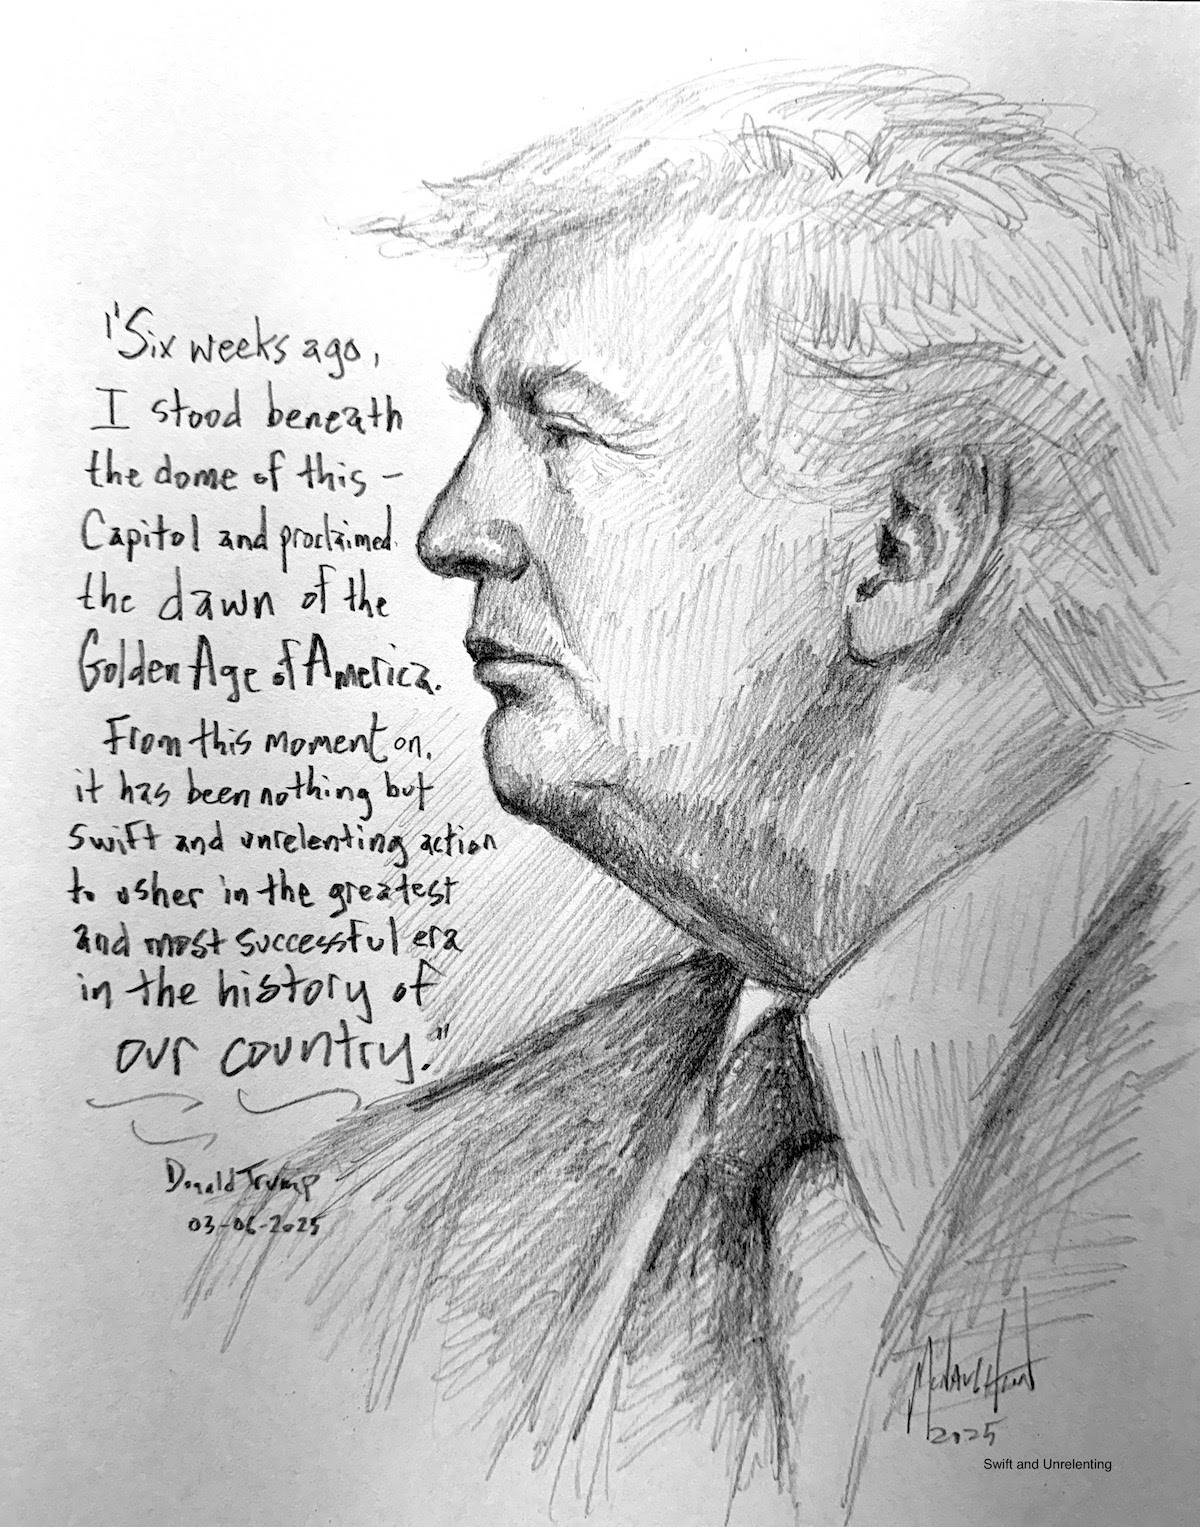 "Six weeks ago,
I stood beneath
the dome of this -
Capitol and proclaimed
the dawn of the
Golden Age of America.
From this moment on,
it has been nothing but
swift and unrelenting action
to usher in the greatest
and most successful era
in the history of
our country."
Donald Trump
03-06-2025
2025
Swift and Unrelenting